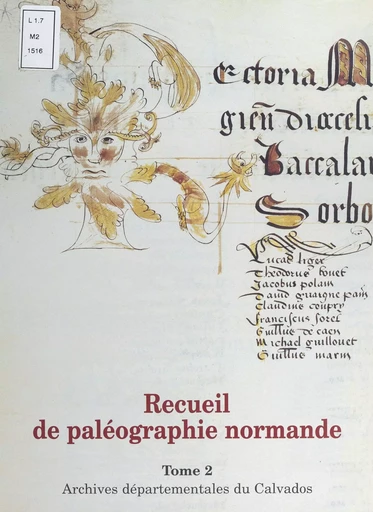 L 1.7
M2
1516
ectoria M
gien̄ diœces
Baccalau
Sorbo
Lucas liger
Theodorus bouet
Jacobus polam
Claudius coupry
Franciscus foret
Guillus de caen
Michael guillouet
Guillus marin
Recueil
de paléographie normande
Tome 2
Archives départementales du Calvados